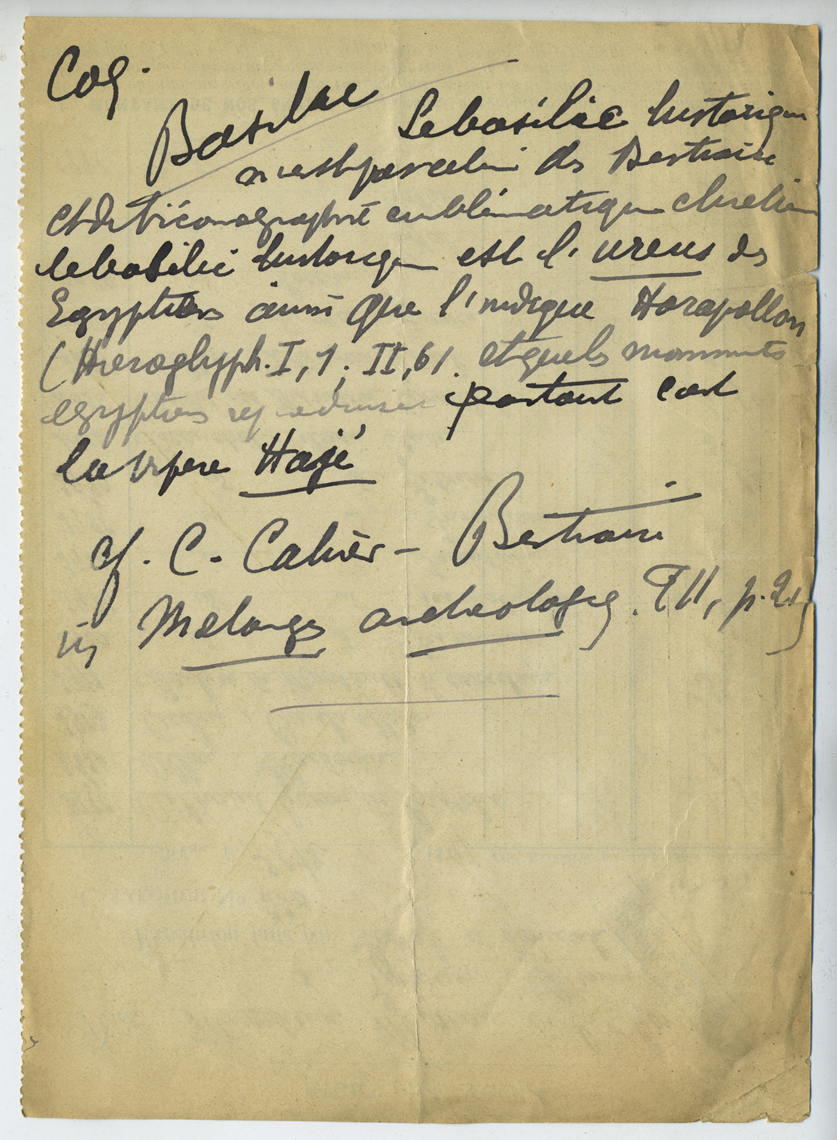 Coq.
Basilic
Le basilic historique
n'est pas celui des Bestiaires
et de l'iconographie emblématique chrétienne
le basilic historique est l'ureus des
Egyptiens ainsi que l'indique Horapollon
(Hieroglyph. I, 1; II, 61. et quels monuments
egyptiens reproduisent partout c'est
la vipere Hajé
cf. C. Cahier - Bestiaire
in Mélanges archeologiq. T II, p. 213